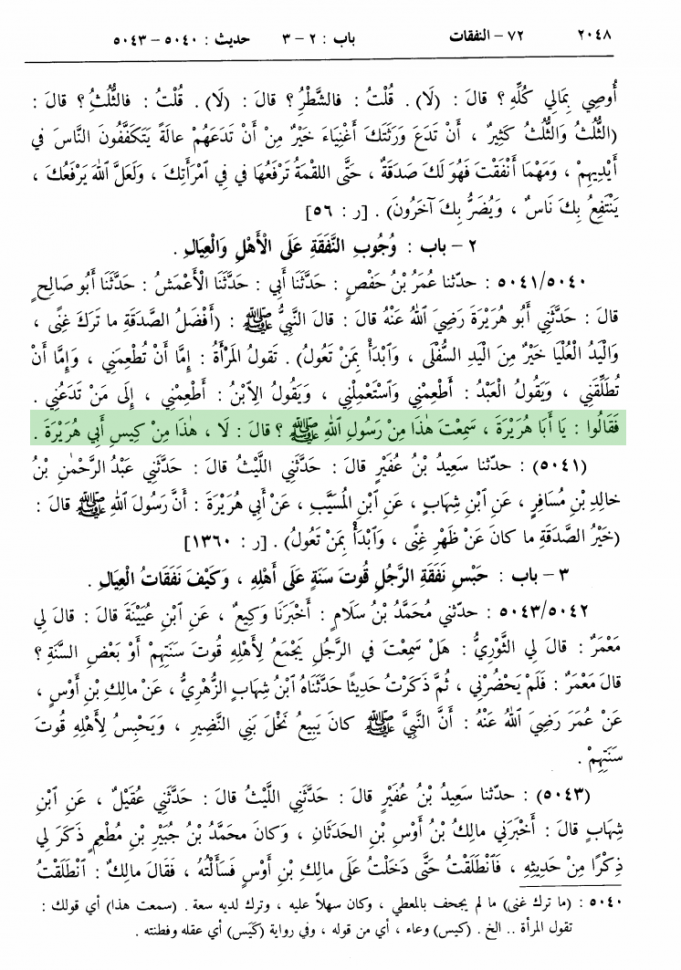 ٢٠٤٨ ٧٢ – النفقات باب : ٢ – ٣ حديث : ٥٠٤٠ – ٥٠٤٣
أُوصِي بِمَالِي كُلِّهِ ؟ قالَ : (لَا) . قُلْتُ : فالشَّطْرُ ؟ قالَ : (لَا) . قُلْتُ : فالثُّلُثُ ؟ قالَ :
(الثُّلُثُ وَالثُّلُثُ كَثِيرٌ ، أَنْ تَدَعَ وَرَثَتَكَ أَغْنِيَاءَ خَيْرٌ مِنْ أَنْ تَدَعَهُمْ عالَةً يَتَكَفَّفُونَ النَّاسَ في
أَيْدِيهِمْ ، وَمَهْمَا أَنْفَقْتَ فَهُوَ لَكَ صَدَقَةٌ ، حَتَّى اللقْمَةُ تَرْفَعُهَا في في امْرَأَتِكَ ، وَلَعَلَّ ٱللهَ يَرْفَعُكَ ،
يَنْتَفِعُ بِكَ نَاسٌ ، وَيُضَرُّ بِكَ آخَرُونَ) . [ر : ٥٦]
٢ – باب : وُجُوبِ النَّفَقَةِ عَلَى الْأَهْلِ وَالْعِيَالِ .
٥٠٤١/٥٠٤٠ : حدّثنا عُمَرُ بْنُ حَفْصٍ : حَدَّثَنَا أَبِي : حَدَّثَنَا الْأَعْمَشُ : حَدَّثَنَا أَبُو صَالِحٍ
قالَ : حَدَّثَنِي أَبُو هُرَيْرَةَ رَضِيَ ٱللهُ عَنْهُ قالَ : قالَ النَّبِيُّ ﷺ : (أَفْضَلُ الصَّدَقَةِ ما تَرَكَ غِنًى ،
وَالْيَدُ الْعُلْيَا خَيْرٌ مِنَ الْيَدِ السُّفْلَى ، وَٱبْدَأْ بِمَنْ تَعُولُ) . تَقُولُ المَرْأَةُ : إِمَّا أَنْ تُطْعِمَنِي ، وَإِمَّا أَنْ
تُطَلِّقَنِي ، وَيَقُولُ الْعَبْدُ : أَطْعِمْنِي وَٱسْتَعْمِلْنِي ، وَيَقُولُ الِٱبْنُ : أَطْعِمْنِي ، إِلَى مَنْ تَدَعُنِي .
فَقَالُوا : يَا أَبَا هُرَيْرَةَ ، سَمِعْتَ هٰذَا مِنْ رَسُولِ ٱللهِ ﷺ ؟ قالَ : لَا ، هٰذَا مِنْ كِيسِ أَبِي هُرَيْرَةَ .
(٥٠٤١) : حدّثنا سَعِيدُ بْنُ عُفَيْرٍ قالَ : حَدَّثَنِي اللَّيْثُ قالَ : حَدَّثَنِي عَبْدُ الرَّحْمٰنِ بْنُ
خالِدِ بْنِ مُسَافِرٍ ، عَنِ ٱبْنِ شِهَابٍ ، عَنِ ٱبْنِ المُسَيَّبِ ، عَنْ أَبِي هُرَيْرَةَ : أَنَّ رَسُولَ ٱللهِ ﷺ قالَ :
(خَيْرُ الصَّدَقَةِ ما كانَ عَنْ ظَهْرِ غِنًى ، وَٱبْدَأْ بِمَنْ تَعُولُ) . [ر : ١٣٦٠]
٣ – باب : حَبْسِ نَفَقَةِ الرَّجُلِ قُوتَ سَنَةٍ عَلَى أَهْلِهِ ، وَكَيْفَ نَفَقَاتُ الْعِيَالِ .
٥٠٤٣/٥٠٤٢ : حدّثني مُحَمَّدُ بْنُ سَلَامٍ : أَخْبَرَنَا وَكِيعٌ ، عَنِ ٱبْنِ عُيَيْنَةَ قالَ : قالَ لِي
مَعْمَرٌ : قالَ لِي الثَّوْرِيُّ : هَلْ سَمِعْتَ في الرَّجُلِ يَجْمَعُ لِأَهْلِهِ قُوتَ سَنَتِهِمْ أَوْ بَعْضِ السَّنَةِ ؟
قالَ مَعْمَرٌ : فَلَمْ يَحْضُرْنِي ، ثُمَّ ذَكَرْتُ حَدِيثًا حَدَّثَنَاهُ ٱبْنُ شِهَابٍ الزُّهْرِيُّ ، عَنْ مالِكِ بْنِ أَوْسٍ ،
عَنْ عُمَرَ رَضِيَ ٱللهُ عَنْهُ : أَنَّ النَّبِيَّ ﷺ كانَ يَبِيعُ نَخْلَ بَنِي النَّضِيرِ ، وَيَحْبِسُ لِأَهْلِهِ قُوتَ
سَنَتِهِمْ .
(٥٠٤٣) : حدّثنا سَعِيدُ بْنُ عُفَيْرٍ قالَ : حَدَّثَنِي اللَّيْثُ قالَ : حَدَّثَنِي عُقَيْلٌ ، عَنِ ٱبْنِ
شِهَابٍ قالَ : أَخْبَرَنِي مالِكُ بْنُ أَوْسِ بْنِ الحَدَثَانِ ، وَكانَ محَمَّدُ بْنُ جُبَيْرِ بْنِ مُطْعِمٍ ذَكَرَ لِي
ذِكْرًا مِنْ حَدِيثِهِ ، فَٱنْطَلَقْتُ حَتَّى دَخَلْتُ عَلَى مالِكِ بْنِ أَوْسٍ فَسَأَلْتُهُ ، فَقَالَ مالِكٌ : ٱنْطَلَقْتُ
٥٠٤٠ : (ما ترك غنى) ما لم يجحف بالمعطي ، وكان سهلاً عليه ، وترك لديه سعة . (سمعت هذا) أي قولك :
تقول المرأة .. الخ . (كيس) وعاء ، أي من قوله ، وفي رواية (كَيَس) أي عقله وفطنته .